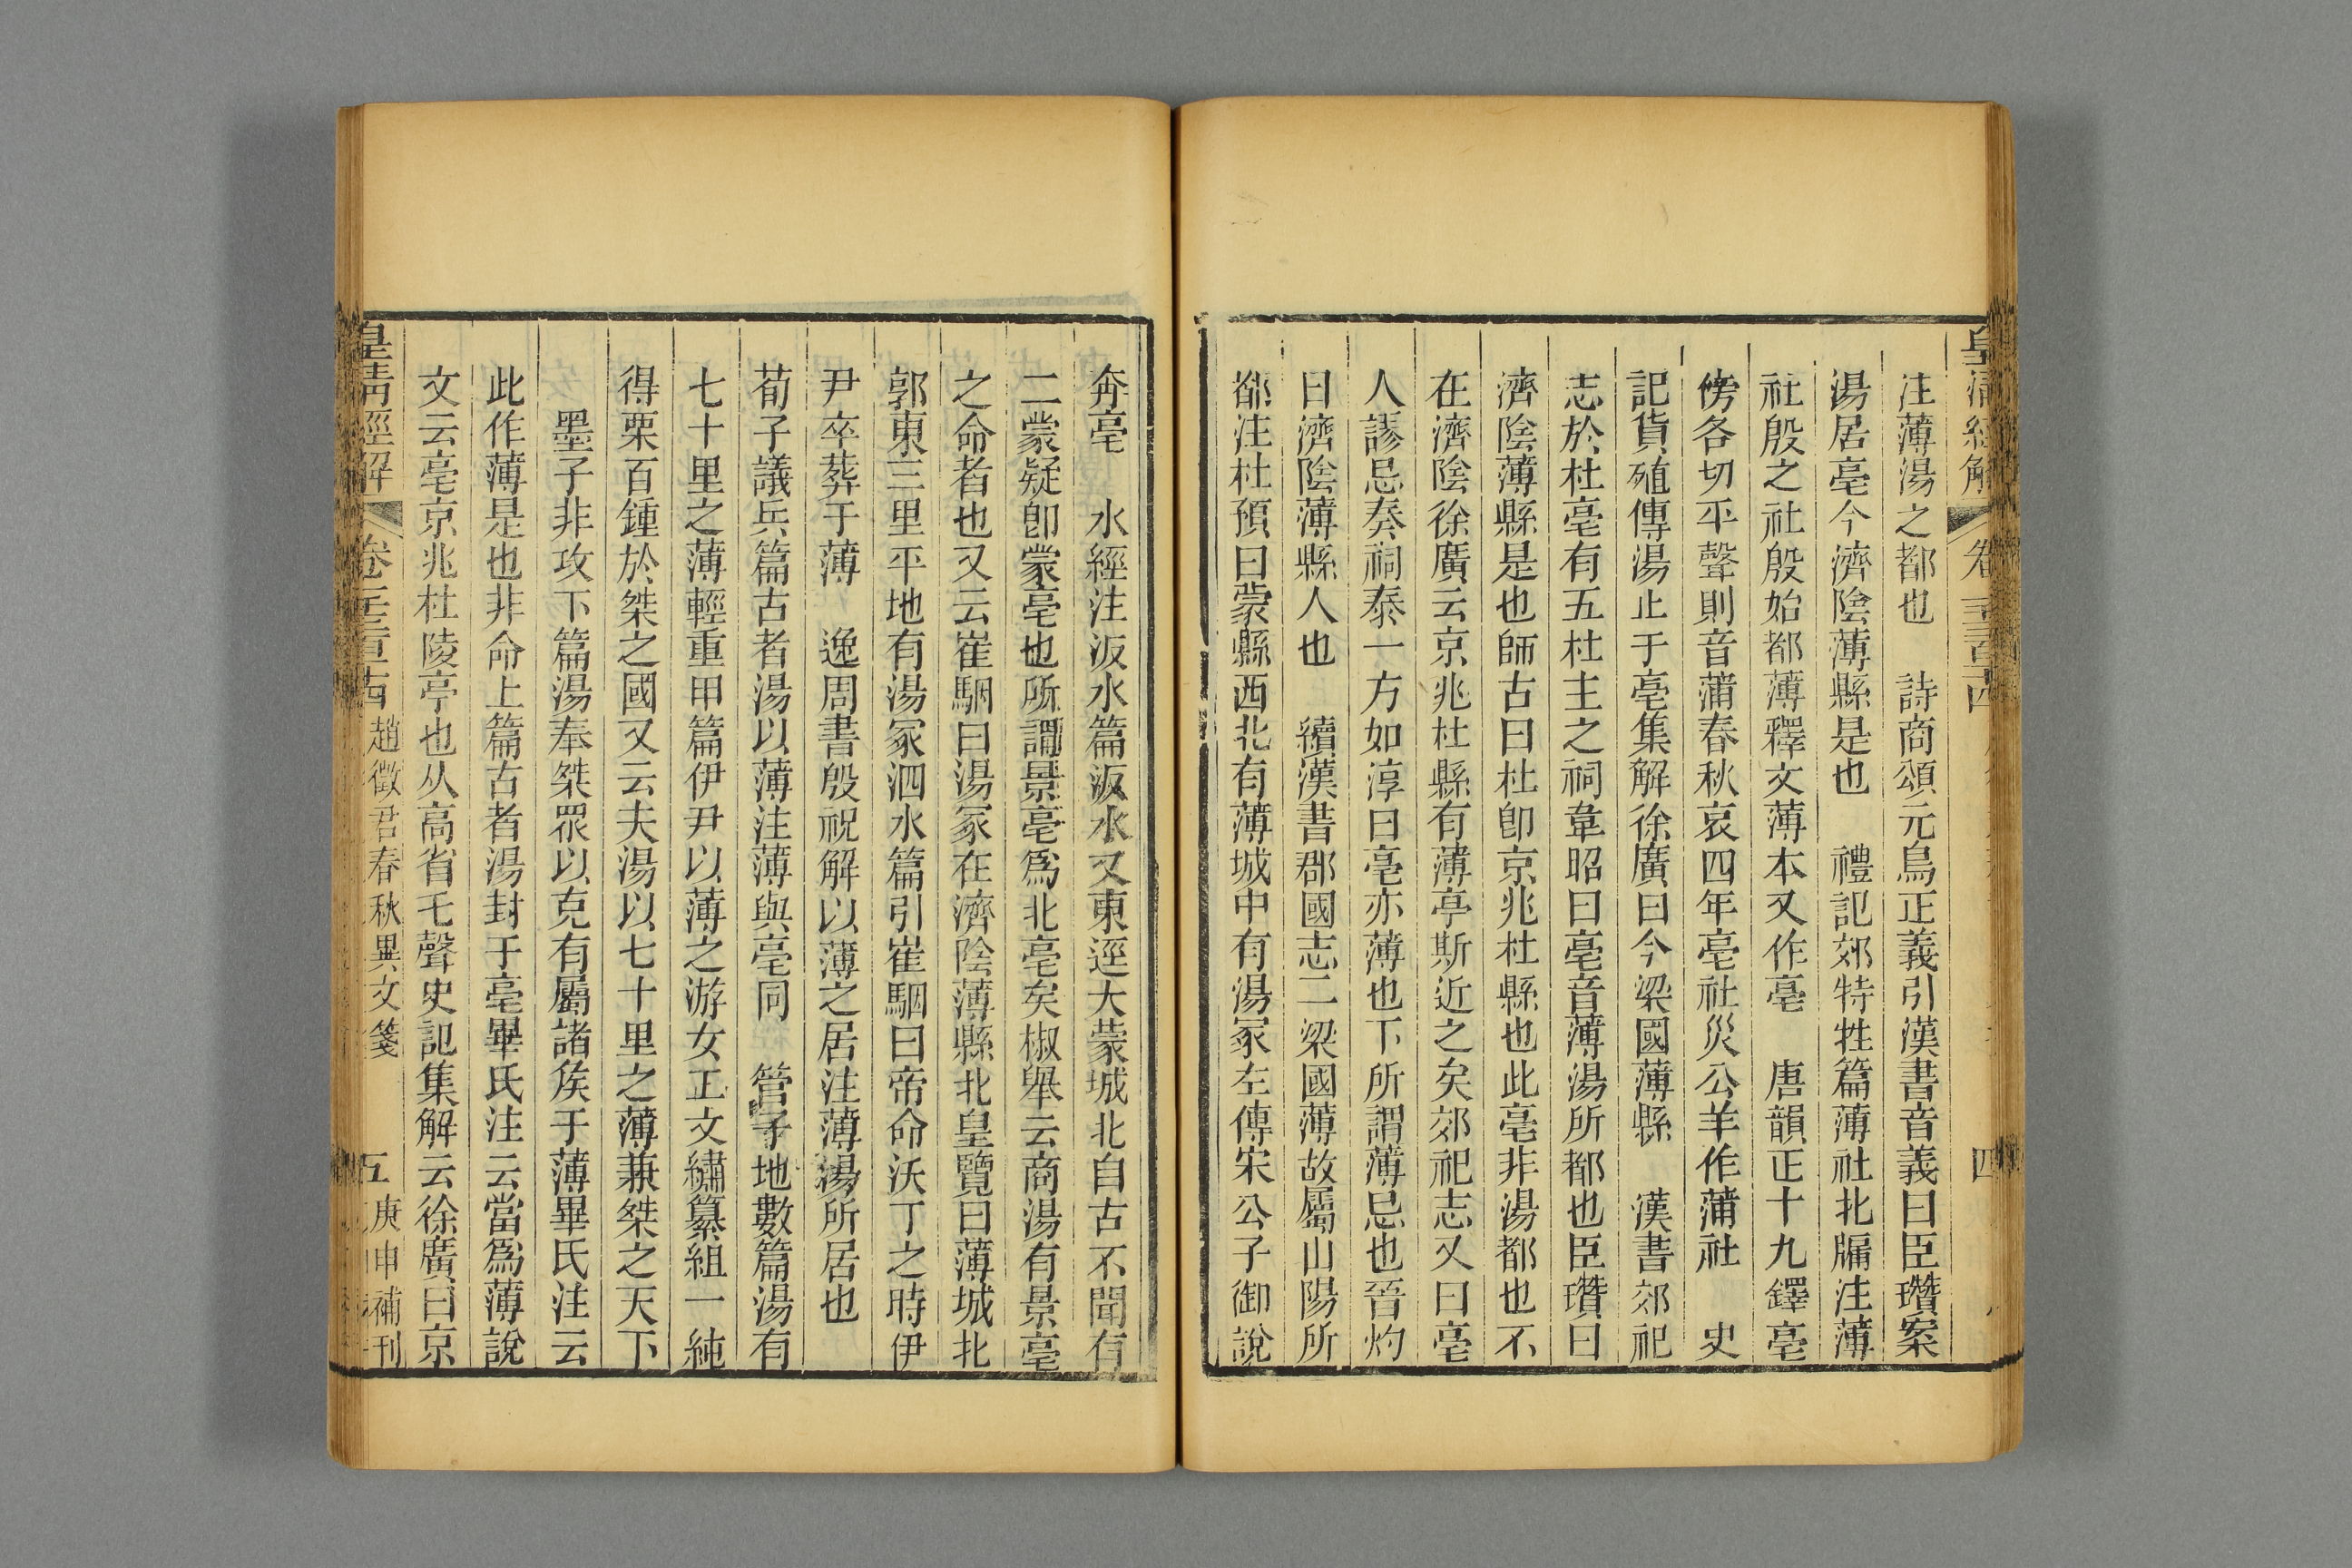 皇清經解
卷一千三百十四
四
注薄湯之都也　詩商頌元鳥正義引漢書音義曰臣瓚案
湯居亳今濟陰薄縣是也　禮記郊特牲篇薄社北牖注薄
社殷之社殷始都薄釋文薄本又作亳　唐韻正十九鐸亳
傍各切平聲則音蒲春秋哀四年亳社災公羊作蒲社　史
記貨殖傳湯止于亳集解徐廣曰今梁國薄縣　漢書郊祀
志於杜亳有五杜主之祠韋昭曰亳音薄湯所都也臣瓚曰
濟陰薄縣是也師古曰杜卽京兆杜縣也此亳非湯都也不
在濟陰徐廣云京兆杜縣有薄亭斯近之矣郊祀志又曰亳
人謬忌奏祠泰一方如淳曰亳亦薄也下所謂薄忌也晉灼
曰濟陰薄縣人也　續漢書郡國志二梁國薄故屬山陽所
都注杜預曰蒙縣西北有薄城中有湯冢左傳宋公子御說
奔亳　水經注汳水篇汳水又東逕大蒙城北自古不聞有
二蒙疑卽蒙亳也所謂景亳爲北亳矣椒舉云商湯有景亳
之命者也又云崔駰曰湯冢在濟陰薄縣北皇覽曰薄城北
郭東三里平地有湯冢泗水篇引崔駰曰帝命沃丁之時伊
尹卒葬于薄　逸周書殷祝解以薄之居注薄湯所居也
荀子議兵篇古者湯以薄注薄與亳同　管子地數篇湯有
七十里之薄輕重甲篇伊尹以薄之游女正文繡纂組一純
得栗百鍾於桀之國又云夫湯以七十里之薄兼桀之天下
墨子非攻下篇湯奉桀眾以克有屬諸矦于薄畢氏注云
此作薄是也非命上篇古者湯封于亳畢氏注云當爲薄說
文云亳京兆杜陵亭也从高省乇聲史記集解云徐廣曰京
皇清經解
卷一千三百十四
趙徵君春秋異文箋
五
庚申補刊